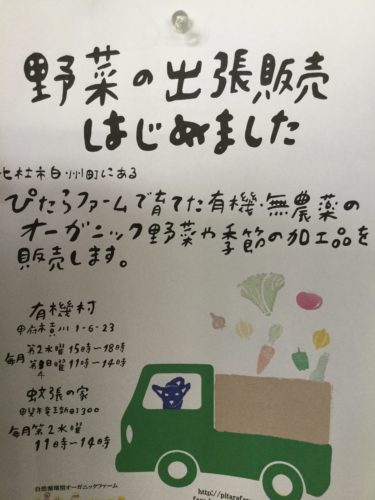 野菜の出張販売
はじめました
北杜市白州町にある
ぴたらファームで育てた有機・無農薬の
オーガニック野菜や季節の加工品を
販売します。
有機村
甲府市貢川1-6-23
毎月 第2水曜 15時〜18時
11時〜14時
蚊張の家
毎月第2水曜
11時〜14時
自然循環型オーガニックファーム
http://pitarafa